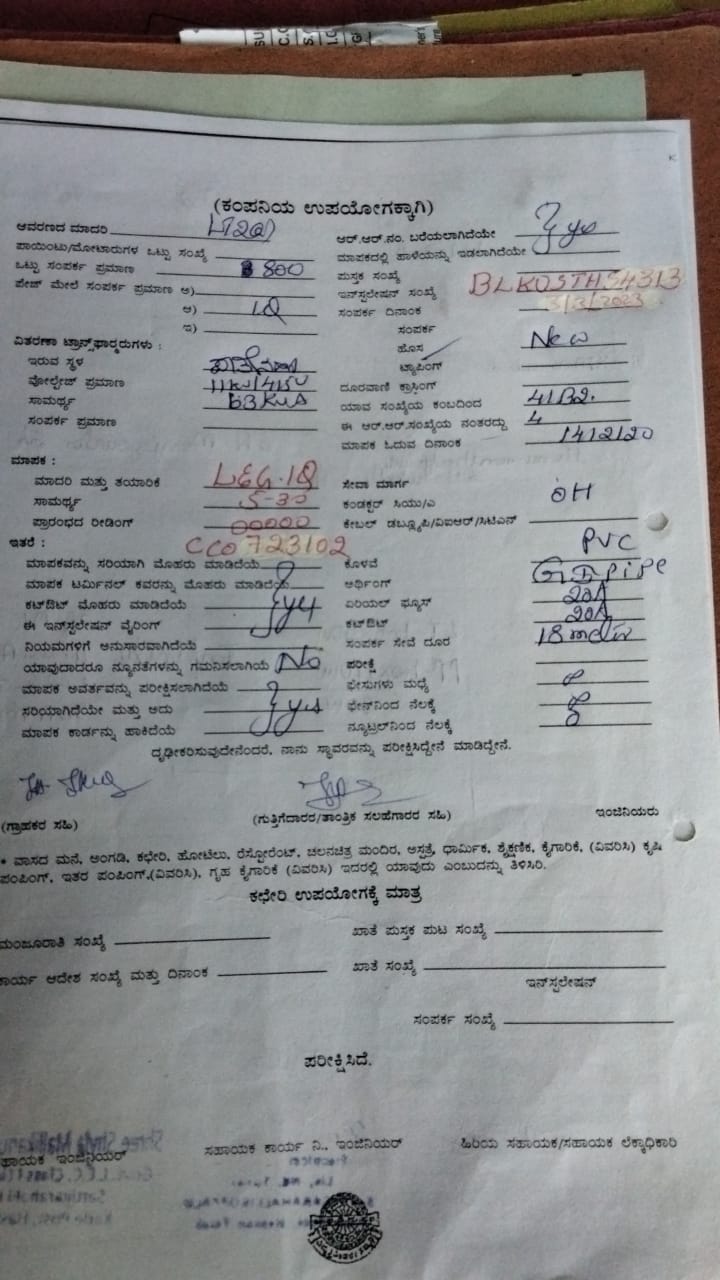 (ಕಂಪನಿಯ ಉಪಯೋಗಕ್ಕಾಗಿ)
ಆವರಣದ ಮಾದರಿ
ಪಾಯಿಂಟು/ಮೋಟಾರುಗಳ ಒಟ್ಟು ಸಂಖ್ಯೆ
ಒಟ್ಟು ಸಂಪರ್ಕ ಪ್ರಮಾಣ 800
ಪೇಜ್ ಮೇಲೆ ಸಂಪರ್ಕ ಪ್ರಮಾಣ ಅ)
ಆ)
ಇ)
ವಿತರಣಾ ಟ್ರಾನ್ಸ್‌ಫಾರ್ಮರುಗಳು :
ಇರುವ ಸ್ಥಳ
ವೋಲ್ಟೇಜ್ ಪ್ರಮಾಣ 11KV/415V
ಸಾಮರ್ಥ್ಯ 63KVA
ಸಂಪರ್ಕ ಪ್ರಮಾಣ
ಆರ್.ಆರ್.ನಂ. ಬರೆಯಲಾಗಿದೆಯೇ
ಮಾಪಕದಲ್ಲಿ ಹಾಳೆಯನ್ನು ಇಡಲಾಗಿದೆಯೇ yes
ಪುಸ್ತಕ ಸಂಖ್ಯೆ
ಇನ್‌ಸ್ಟಲೇಷನ್ ಸಂಖ್ಯೆ BLKOSTH54313
ಸಂಪರ್ಕ ದಿನಾಂಕ 3/3/2023
ಸಂಪರ್ಕ
ಹೊಸ New
ಟ್ಯಾಪಿಂಗ್
ದೂರವಾಣಿ ಕ್ರಾಸಿಂಗ್
ಯಾವ ಸಂಖ್ಯೆಯ ಕಂಬದಿಂದ
ಈ ಆರ್.ಆರ್.ಸಂಖ್ಯೆಯ ನಂತರದ್ದು 4
ಮಾಪಕ ಓದುವ ದಿನಾಂಕ
ಮಾಪಕ :
ಮಾದರಿ ಮತ್ತು ತಯಾರಿಕೆ
ಸಾಮರ್ಥ್ಯ 5-30
ಪ್ರಾರಂಭದ ರೀಡಿಂಗ್ 00000
ಸೇವಾ ಮಾರ್ಗ
ಕಂಡಕ್ಟರ್ ಸಿಯು/ಎ OH
ಕೇಬಲ್ ಡಬ್ಲ್ಯೂಪಿ/ವಿಐಆರ್/ಸಿಟಿಎನ್
ಇತರೆ : CC0723102
ಮಾಪಕವನ್ನು ಸರಿಯಾಗಿ ಮೊಹರು ಮಾಡಿದೆಯೆ
ಮಾಪಕ ಟರ್ಮಿನಲ್ ಕವರನ್ನು ಮೊಹರು ಮಾಡಿದೆಯೆ
ಕಟ್‌ಔಟ್ ಮೊಹರು ಮಾಡಿದೆಯೆ yes
ಈ ಇನ್‌ಸ್ಟಲೇಷನ್ ವೈರಿಂಗ್
ನಿಯಮಗಳಿಗೆ ಅನುಸಾರವಾಗಿದೆಯೆ
ಯಾವುದಾದರೂ ನ್ಯೂನತೆಗಳನ್ನು ಗಮನಿಸಲಾಗಿಯೆ No
ಮಾಪಕ ಅವರ್ತವನ್ನು ಪರೀಕ್ಷಿಸಲಾಗಿದೆಯೆ
ಸರಿಯಾಗಿದೆಯೇ ಮತ್ತು ಅದು yes
ಮಾಪಕ ಕಾರ್ಡನ್ನು ಹಾಕಿದೆಯೆ
PVC
ಕೊಳವೆ
ಅರ್ಥಿಂಗ್ GI pipe
ಏರಿಯಲ್ ಫ್ಯೂಸ್ 20A
ಕಟ್‌ಔಟ್ 20A
ಸಂಪರ್ಕ ಸೇವೆ ದೂರ
ಪರೀಕ್ಷೆ
ಫೇಸುಗಳು ಮಧ್ಯೆ
ಫೇಸ್‌ನಿಂದ ನೆಲಕ್ಕೆ
ನ್ಯೂಟ್ರಲ್‌ನಿಂದ ನೆಲಕ್ಕೆ
ದೃಢೀಕರಿಸುವುದೇನೆಂದರೆ, ನಾನು ಸ್ಥಾವರವನ್ನು ಪರೀಕ್ಷಿಸಿದ್ದೇನೆ ಮಾಡಿದ್ದೇನೆ.
(ಗ್ರಾಹಕರ ಸಹಿ) (ಗುತ್ತಿಗೆದಾರರ/ತಾಂತ್ರಿಕ ಸಲಹೆಗಾರರ ಸಹಿ) ಇಂಜಿನಿಯರು
• ವಾಸದ ಮನೆ, ಅಂಗಡಿ, ಕಛೇರಿ, ಹೋಟೆಲು, ರೆಸ್ಟೋರೆಂಟ್, ಚಲನಚಿತ್ರ ಮಂದಿರ, ಅಸ್ಪತ್ರೆ, ಧಾರ್ಮಿಕ, ಶೈಕ್ಷಣಿಕ, ಕೈಗಾರಿಕೆ, (ವಿವರಿಸಿ) ಕೃಷಿ
ಪಂಪಿಂಗ್, ಇತರ ಪಂಪಿಂಗ್,(ವಿವರಿಸಿ), ಗೃಹ ಕೈಗಾರಿಕೆ (ವಿವರಿಸಿ) ಇದರಲ್ಲಿ ಯಾವುದು ಎಂಬುದನ್ನು ತಿಳಿಸಿರಿ.
ಕಛೇರಿ ಉಪಯೋಗಕ್ಕೆ ಮಾತ್ರ
ಮಂಜೂರಾತಿ ಸಂಖ್ಯೆ ಖಾತೆ ಪುಸ್ತಕ ಪುಟ ಸಂಖ್ಯೆ
ಕಾರ್ಯ ಆದೇಶ ಸಂಖ್ಯೆ ಮತ್ತು ದಿನಾಂಕ ಖಾತೆ ಸಂಖ್ಯೆ
ಇನ್‌ಸ್ಟಲೇಷನ್
ಸಂಪರ್ಕ ಸಂಖ್ಯೆ
ಪರೀಕ್ಷಿಸಿದೆ.
ಸಹಾಯಕ ಇಂಜಿನಿಯರ್ ಸಹಾಯಕ ಕಾರ್ಯ ನಿ., ಇಂಜಿನಿಯರ್ ಹಿರಿಯ ಸಹಾಯಕ/ಸಹಾಯಕ ಲೆಕ್ಕಾಧಿಕಾರಿ